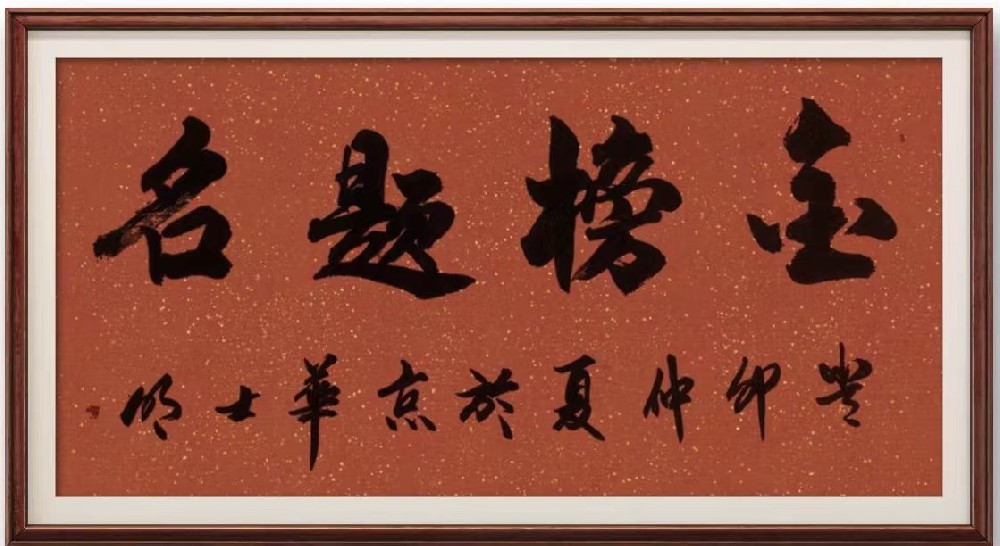 金榜题名
癸卯仲夏於京華士明